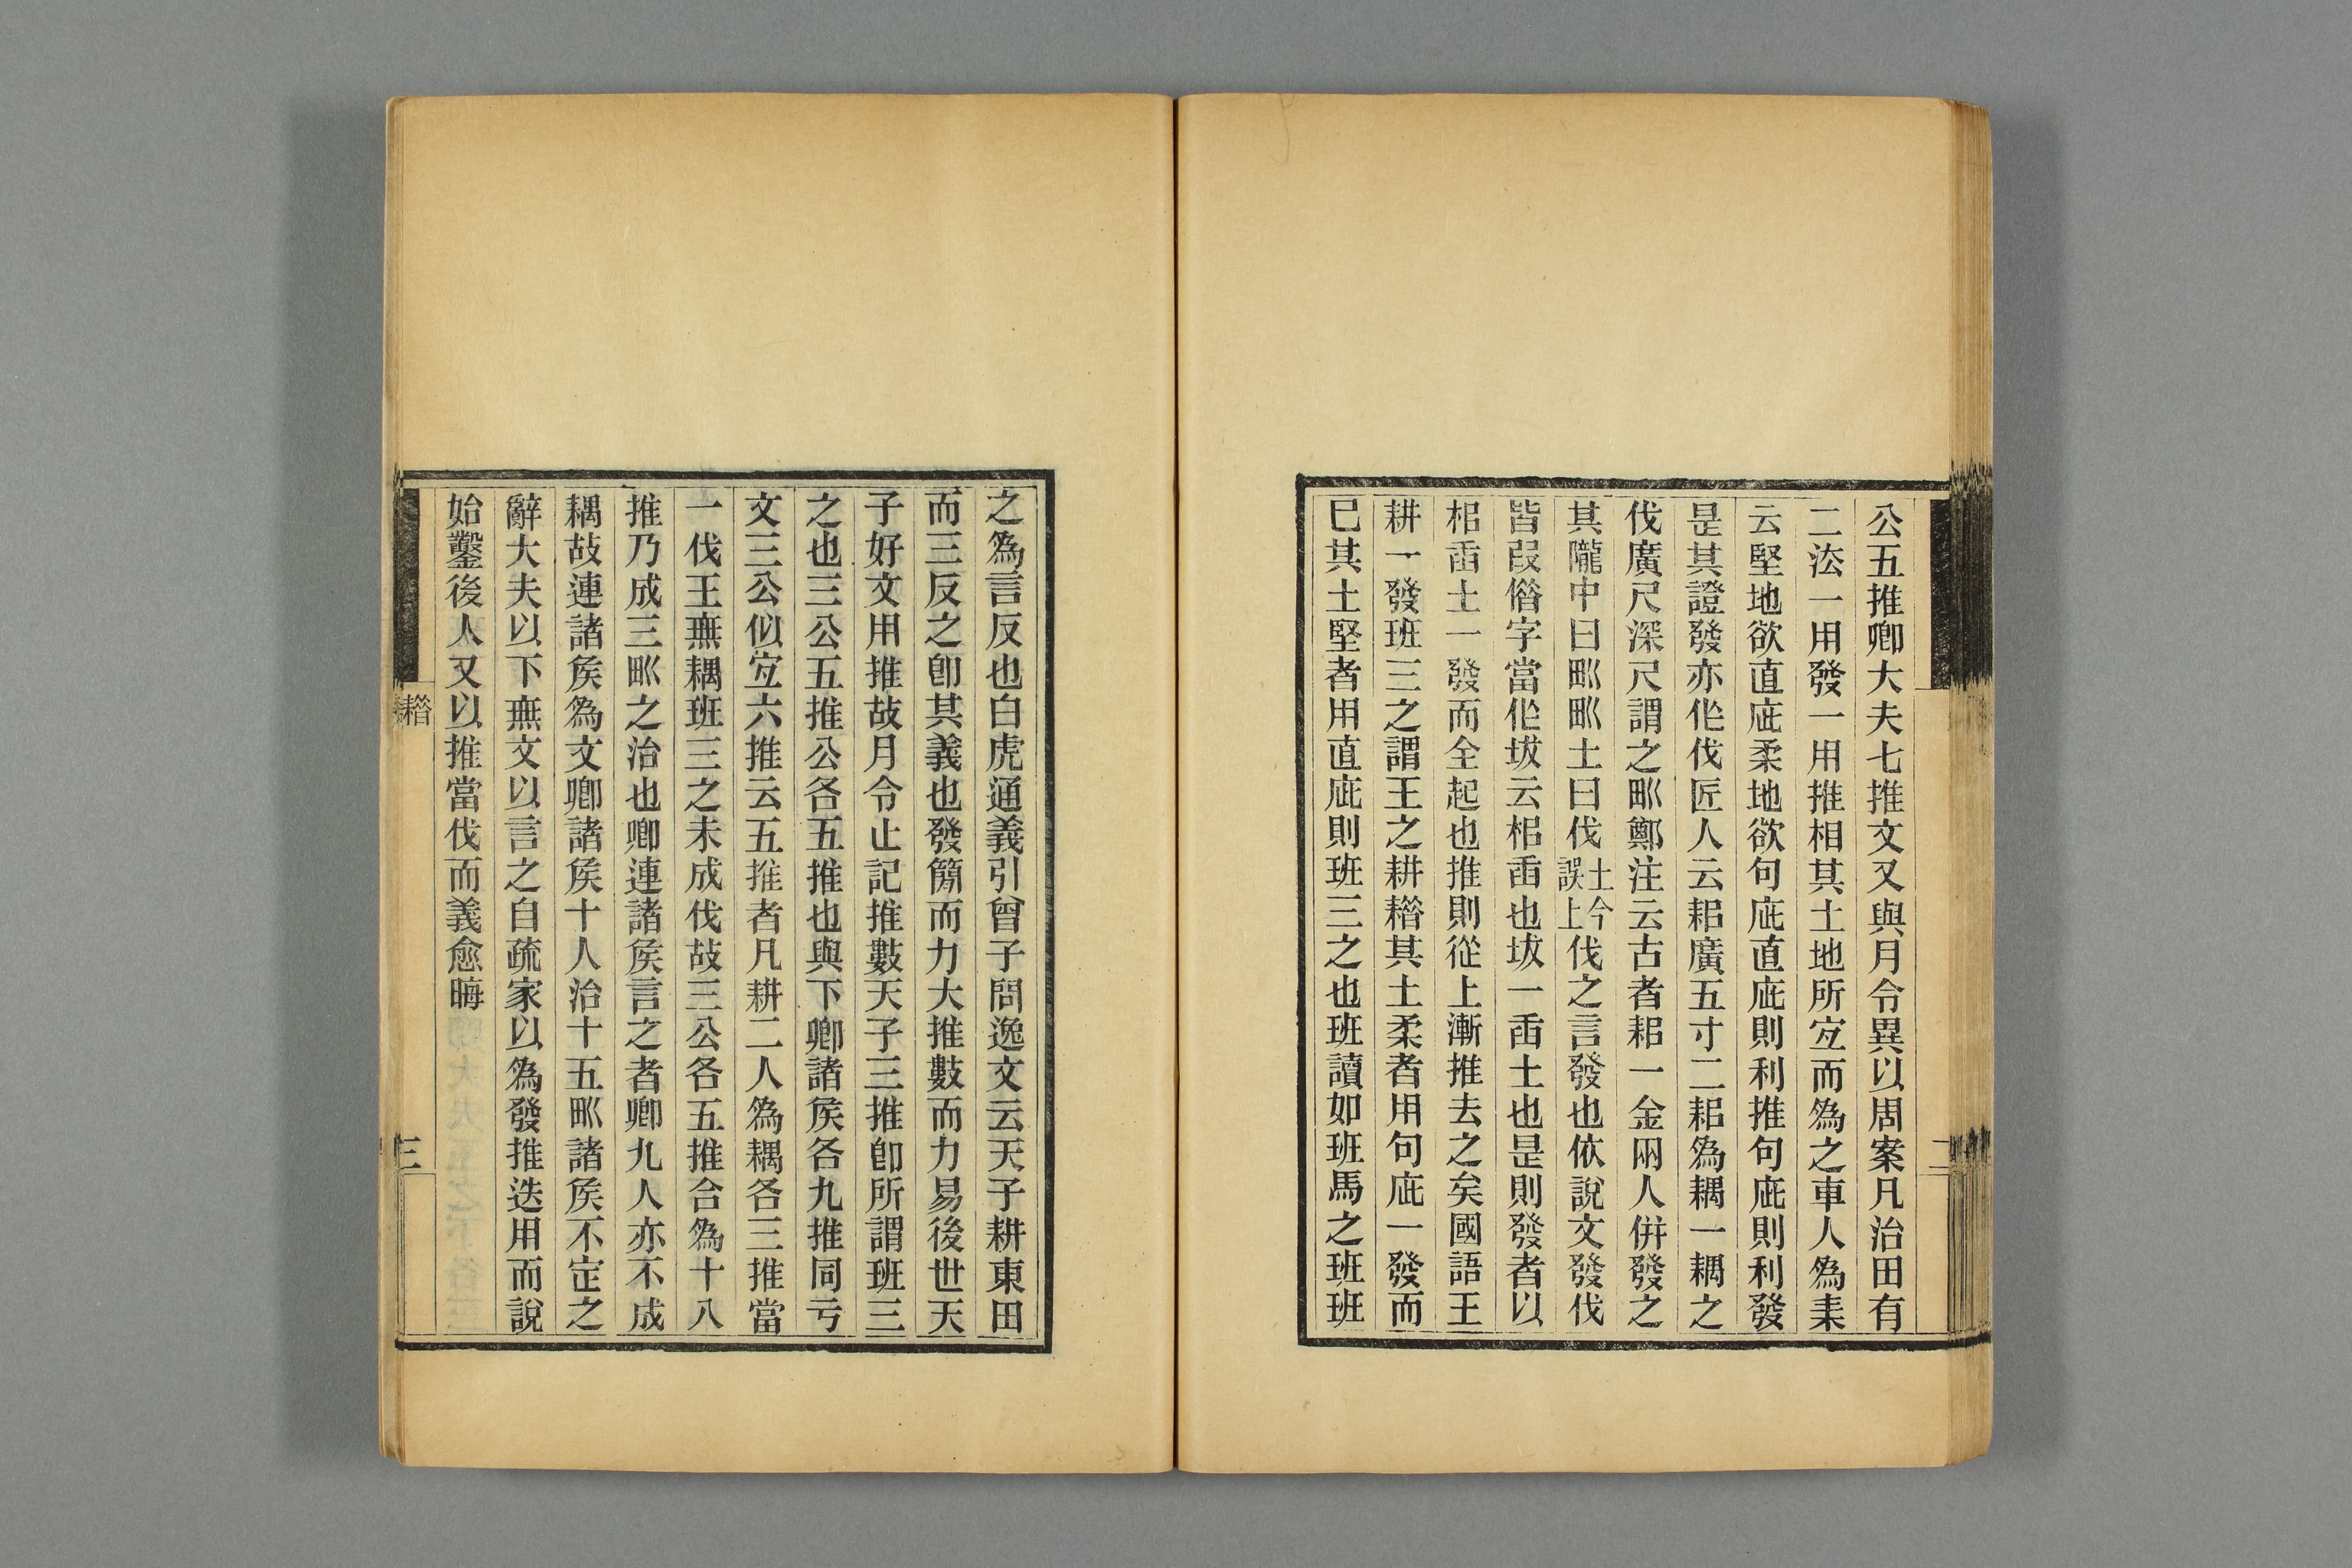 公五推卿大夫七推文又與月令異以周案凡治田有
二㳒一用發一用推相其土地所宐而為之車人為耒
云堅地欲直庛柔地欲句庛直庛則利推句庛則利發
是其證發亦作伐匠人云耜廣五寸二耜為耦一耦之
伐廣尺深尺謂之𤰕鄭注云古者耜一金兩人併發之
其隴中曰𤰕𤰕土曰伐土今誤上伐之言發也依說文發伐
皆叚俗字當作坺云梠臿也坺一臿土也是則發者以
梠臿土一發而全起也推則從上漸推去之矣國語王
耕一發班三之謂王之耕耤其土柔者用句庛一發而
已其土堅者用直庛則班三之也班讀如班馬之班班
之為言反也白虎通義引曾子問逸文云天子耕東田
而三反之卽其義也發簡而力大推數而力易後世天
子好文用推故月令止記推數天子三推卽所謂班三
之也三公五推公各五推也與下卿諸矦各九推同亏
文三公似宐六推云五推者凡耕二人為耦各三推當
一伐王無耦班三之未成伐故三公各五推合為十八
推乃成三𤰕之治也卿連諸矦言之者卿九人亦不成
耦故連諸矦為文卿諸矦十人治十五𤰕諸矦不定之
辭大夫以下無文以言之自疏家以為發推迭用而說
始鑿後人又以推當伐而義愈晦
耤
三